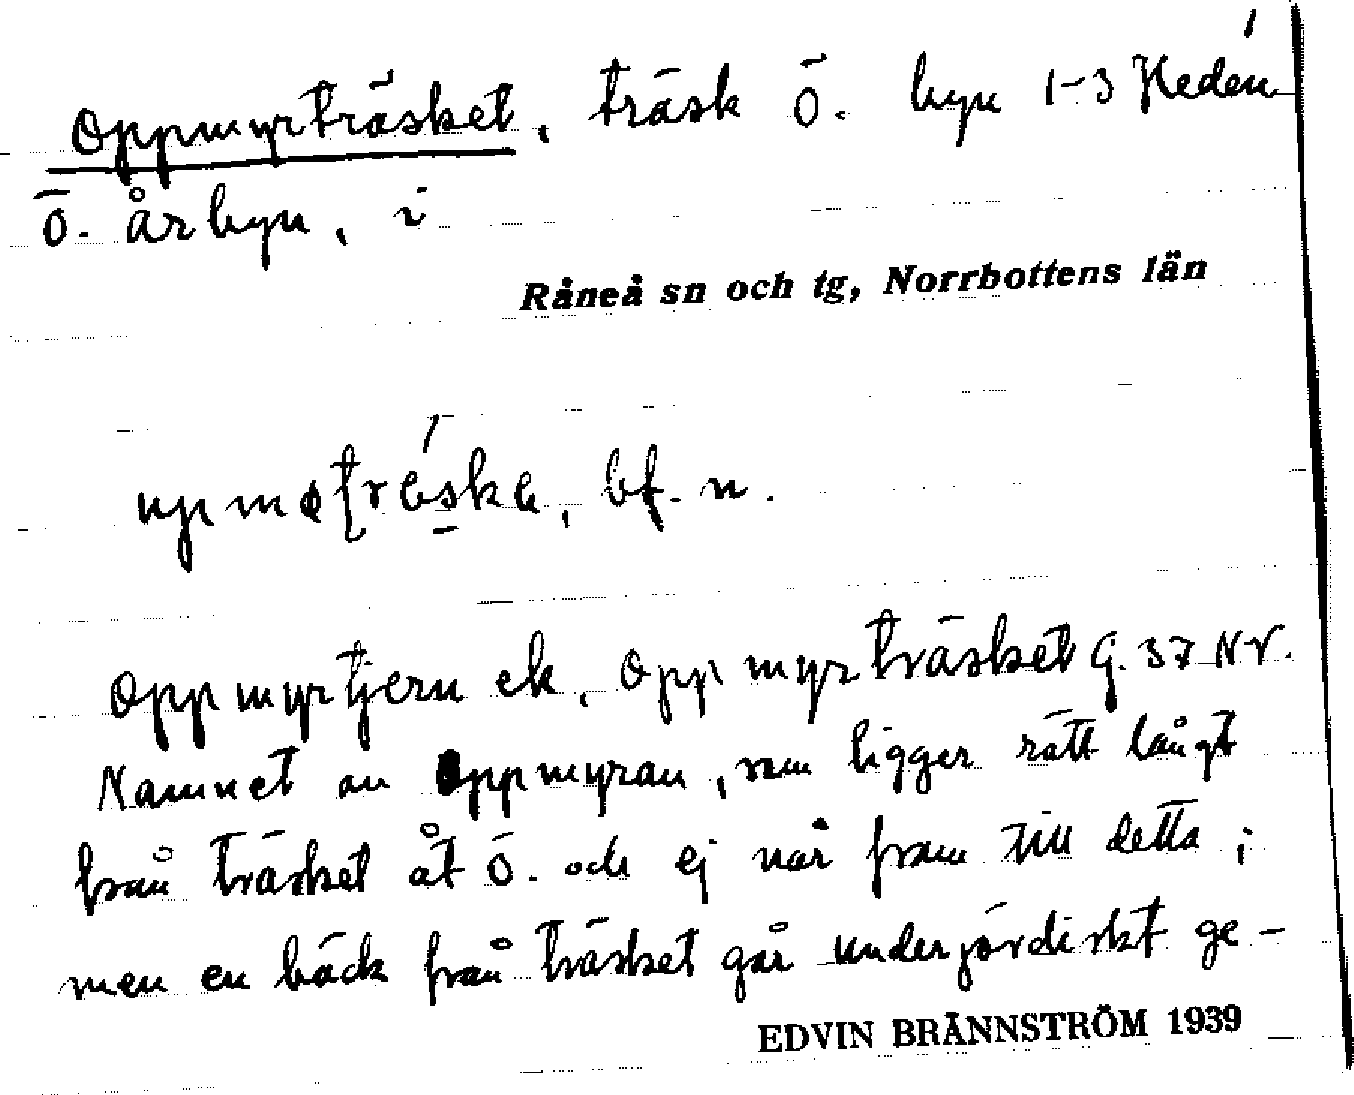 Oppmyrträsket, träsk ö. byn 1-3 Heden
Ö. årbyn, i
Råneå sn och tg, Norrbottens län
bf. n.
Oppmyrtjern ek, Oppmyrträsket G. 37 NV.
Namnet av Oppmyran, som ligger rätt långt
från träsket åt ö. och ej når fram till detta;
men en bäck från träsket går underjordiskt ge-
EDVIN BRÄNNSTRÖM 1939